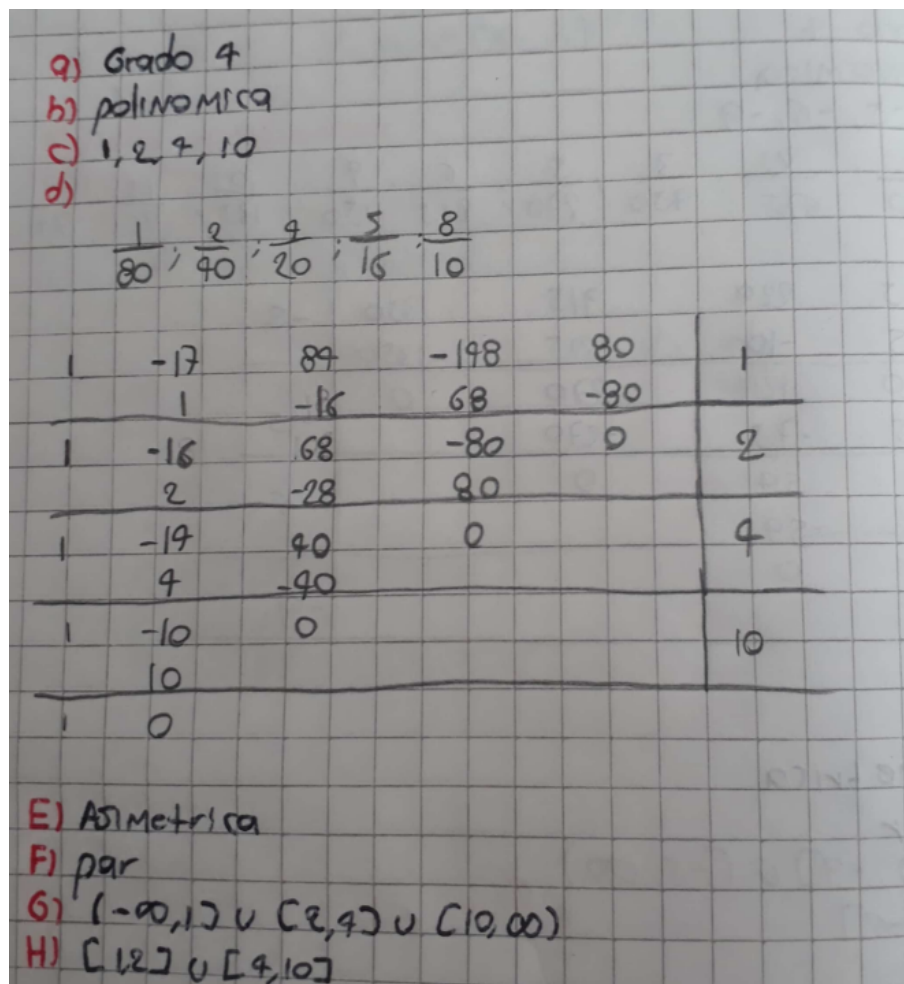 a) Grado 4
b) polinomica
c) 1, 2, 4, 10
d)
1/80 ; 2/40 ; 4/20 ; 5/16 ; 8/10
1 -17 84 -148 80 | 1
1 -16 68 -80
1 -16 68 -80 0 | 2
2 -28 80
1 -14 40 0 | 4
4 -40
1 -10 0 | 10
10
1 0
E) Asimetrica
F) par
G) (-∞,1] ∪ [2,4] ∪ [10,∞)
H) [1,2] ∪ [4,10]